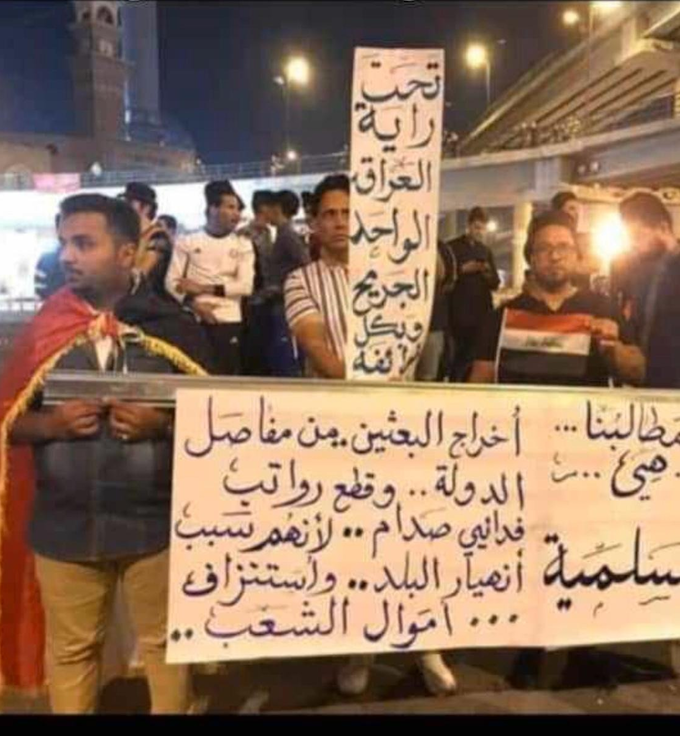 تحت
راية
العراق
الواحد
الجريح
وبكل
مطالبنا...
وهي...
سلمية
أخراج البعثين.من مفاصل
الدولة.. وقطع رواتب
فدائيي صدام.. لأنهم سبب
أنهيار البلد.. وأستنزاف
... اموال الشعب..